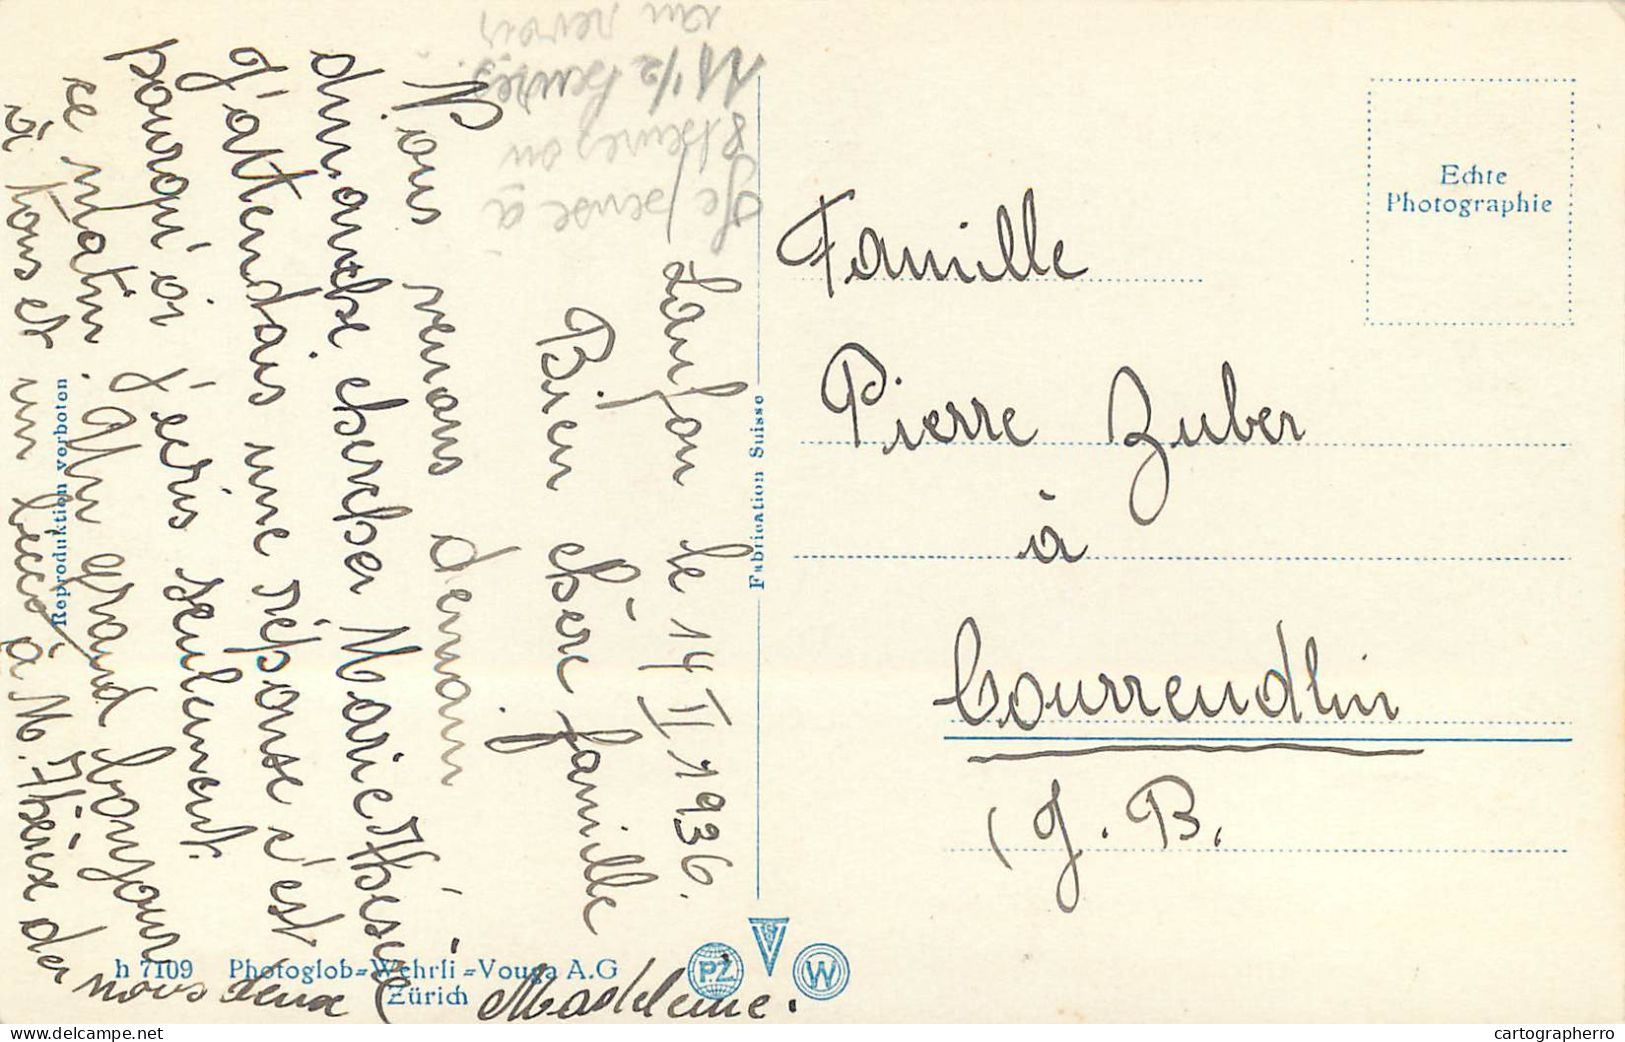 Laufon le 14 II 1936.
Bien chère famille
Nous venons demain
dimanche chercher Marie Thérèse.
J'attendais une réponse c'est
pourqu'oi j'ecris seulement
ce matin. Un grand bonjour
à tous et un bec à M. Thérèse de
nous deux
Madeleine.
Je pense à
8 heures ou
11 1/2 heures.
au revoir
Echte
Photographie
Famille
Pierre Zuber
à
Courrendlin
(J. B.
Fabrication Suisse
Reproduktion verboten
h 7109 Photoglob=Wehrli=Vouga A.G
Zürich
PZ
W
cartographerro